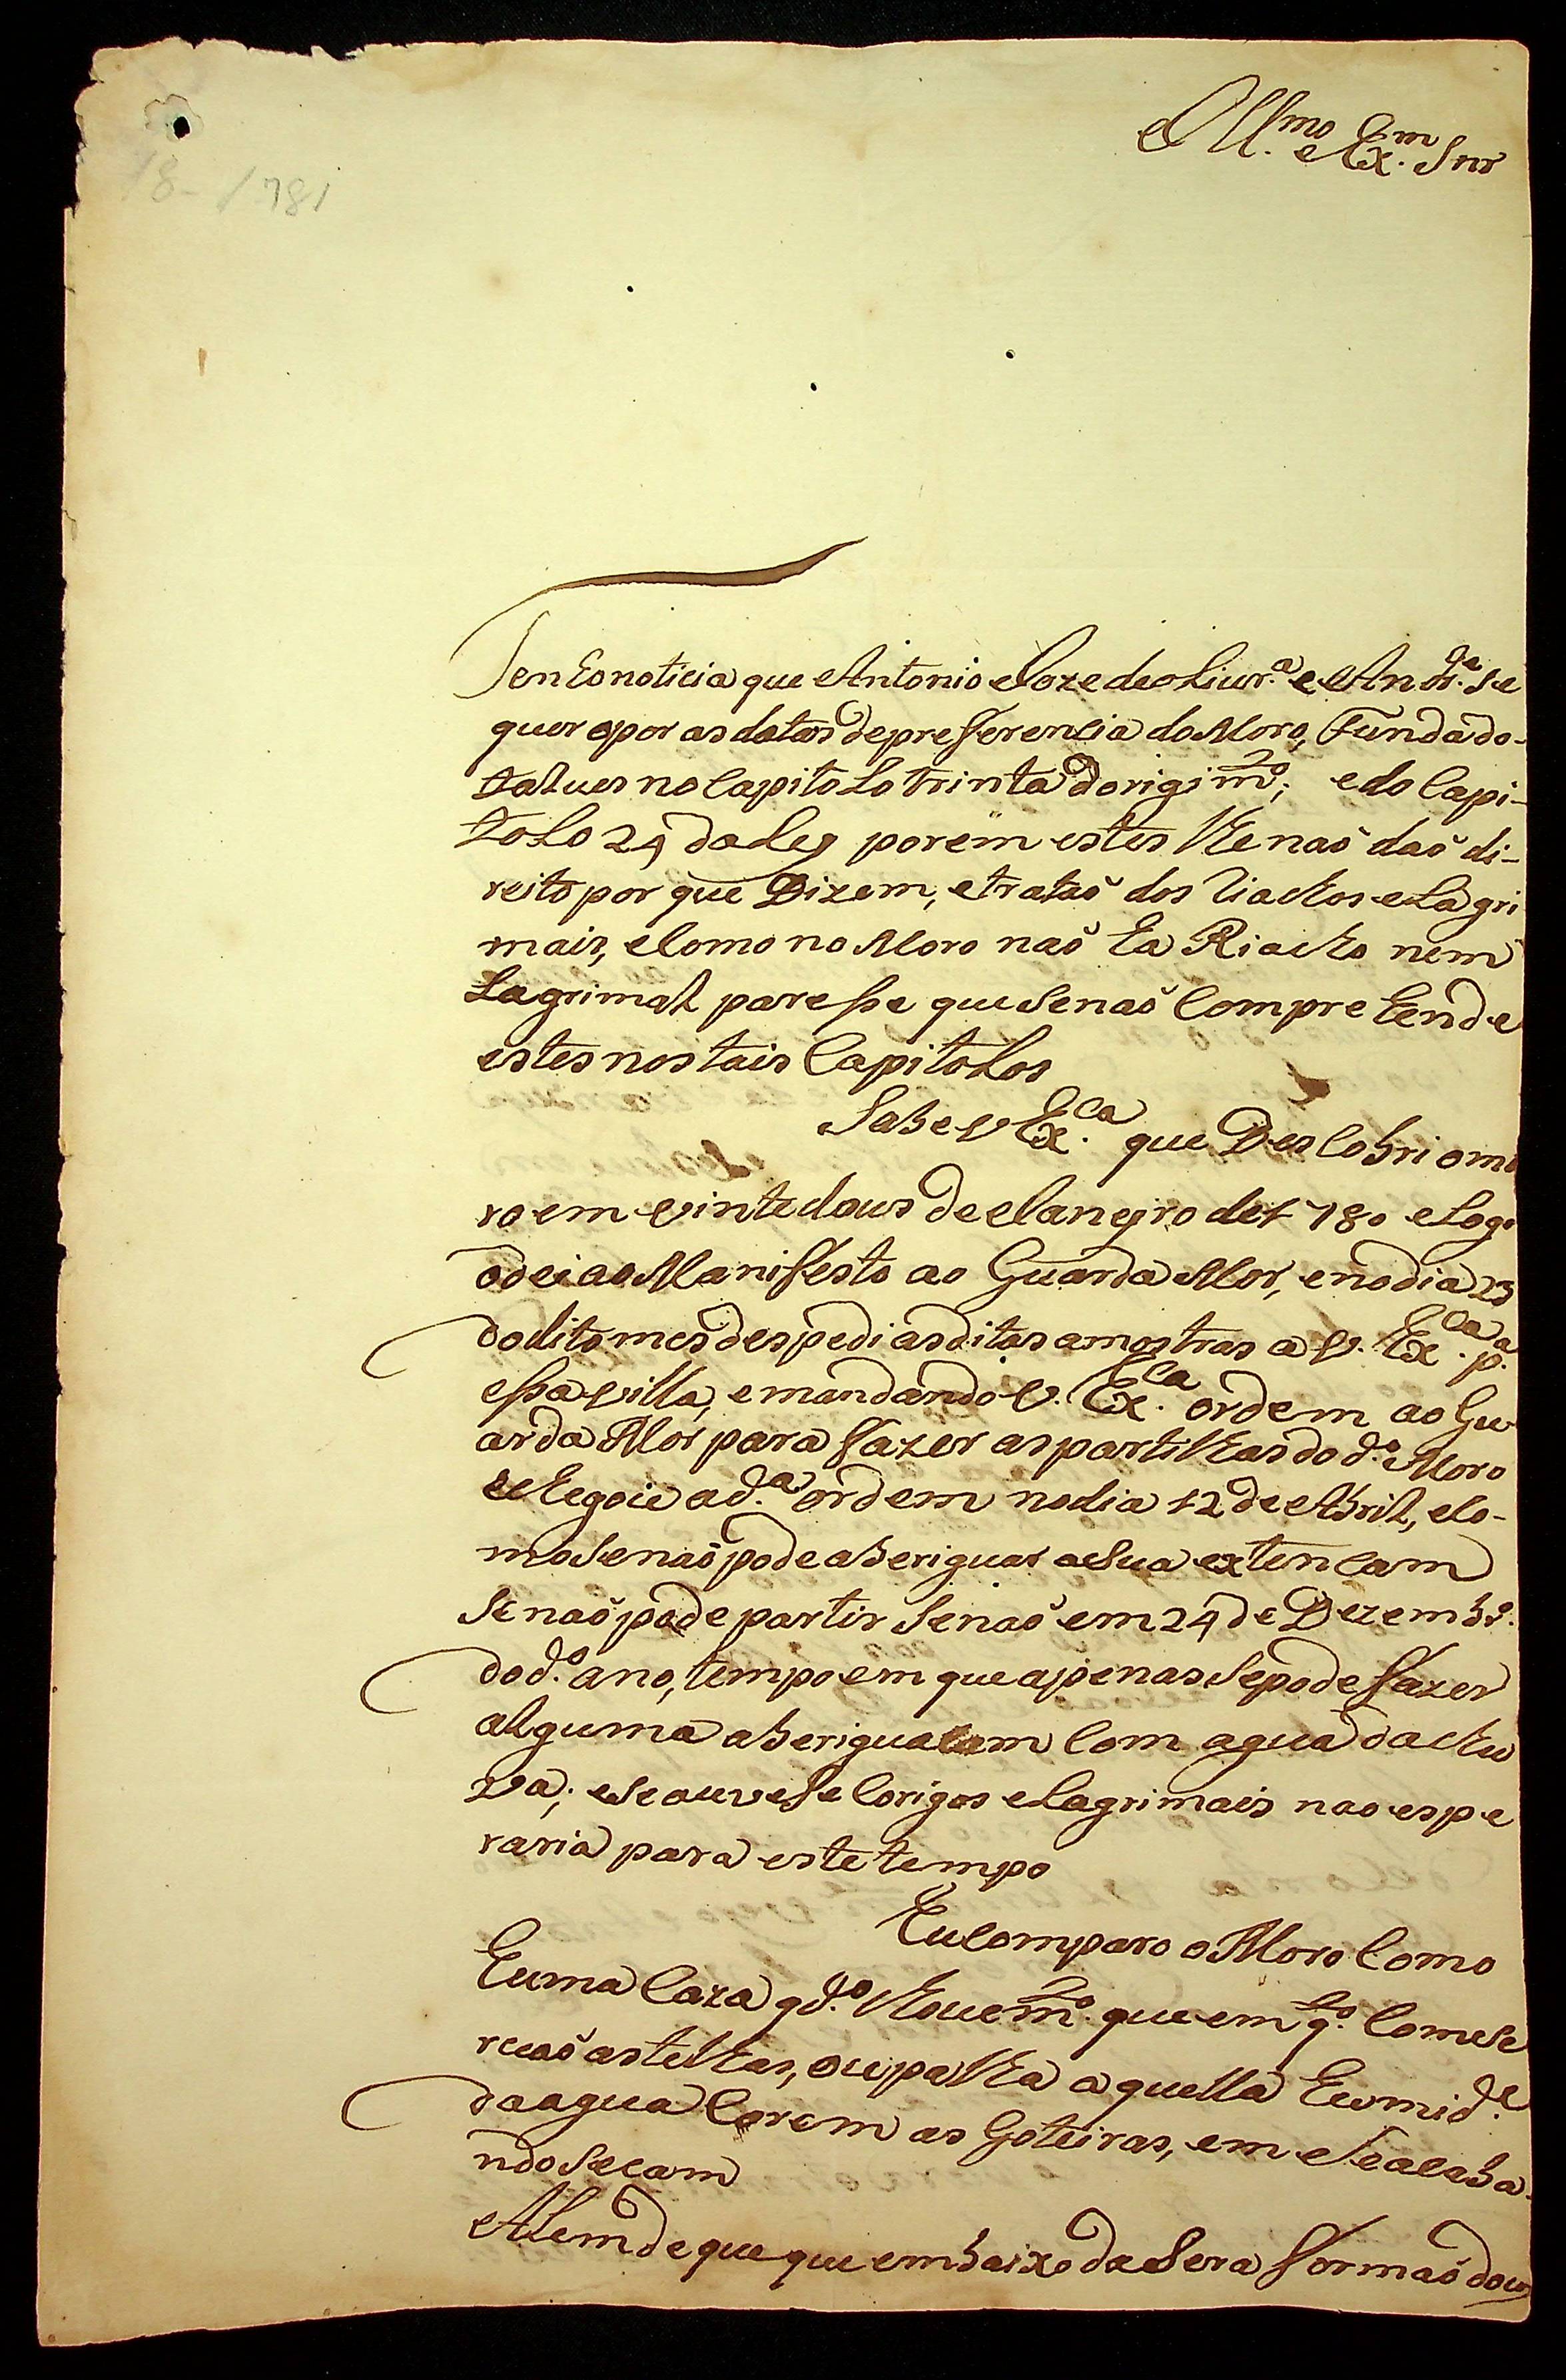 Ill.mo e Ex.m Snr
18- / 781
Tenho noticia que Antonio Joze de oLiur.a e An dr.e se
quer opor as datas de prefferencia do Moro, Fundado
talues no Capitolo trinta do rigim.to; e do Capi-
toLo 24 da Ley porem estes lhe naõ daõ di-
reito por que Dizem, e trataõ dos Riachos e Lagri
mais, e como no Moro naõ ha Riacho nem
Lagrimal paresse que se naõ Comprehende
estes nos tais CapitoLos
Sabe V Ex.ca que Descobri o mo
ro em vinte dous de Janeyro de 1780 e Logo
o dei ao Manifesto ao Guarda Mor, e no dia 23
do dito mes despedi as ditas amostras a V. Ex.ca p.a
essa villa, e mandando V. Ex.ca ordem ao Gu
arda Mor para fazer as partilhas do d.o Moro
lhe chegou a d.a ordem no dia 12 de Abril, e co-
mo se naõ pode aberiguar a sua extencam
se naõ pode partir senaõ em 24 de Dezembr.o
do d.o ano, tempo em que apenas se pode fazer
alguma aberiguacam com agua da chu
va; e se auvese Corigos e Lagrimais nao espe
raria para este tempo
Eu comparo o Moro Como
huma Caza q d.o choue m.to que em q.to Comese
reaõ as telhas, ou palha aquella humid.e
da agua Corem as Goteiras, em se acaba-
ndo secam
ALem de que que em baixo da Sera formaõ dous